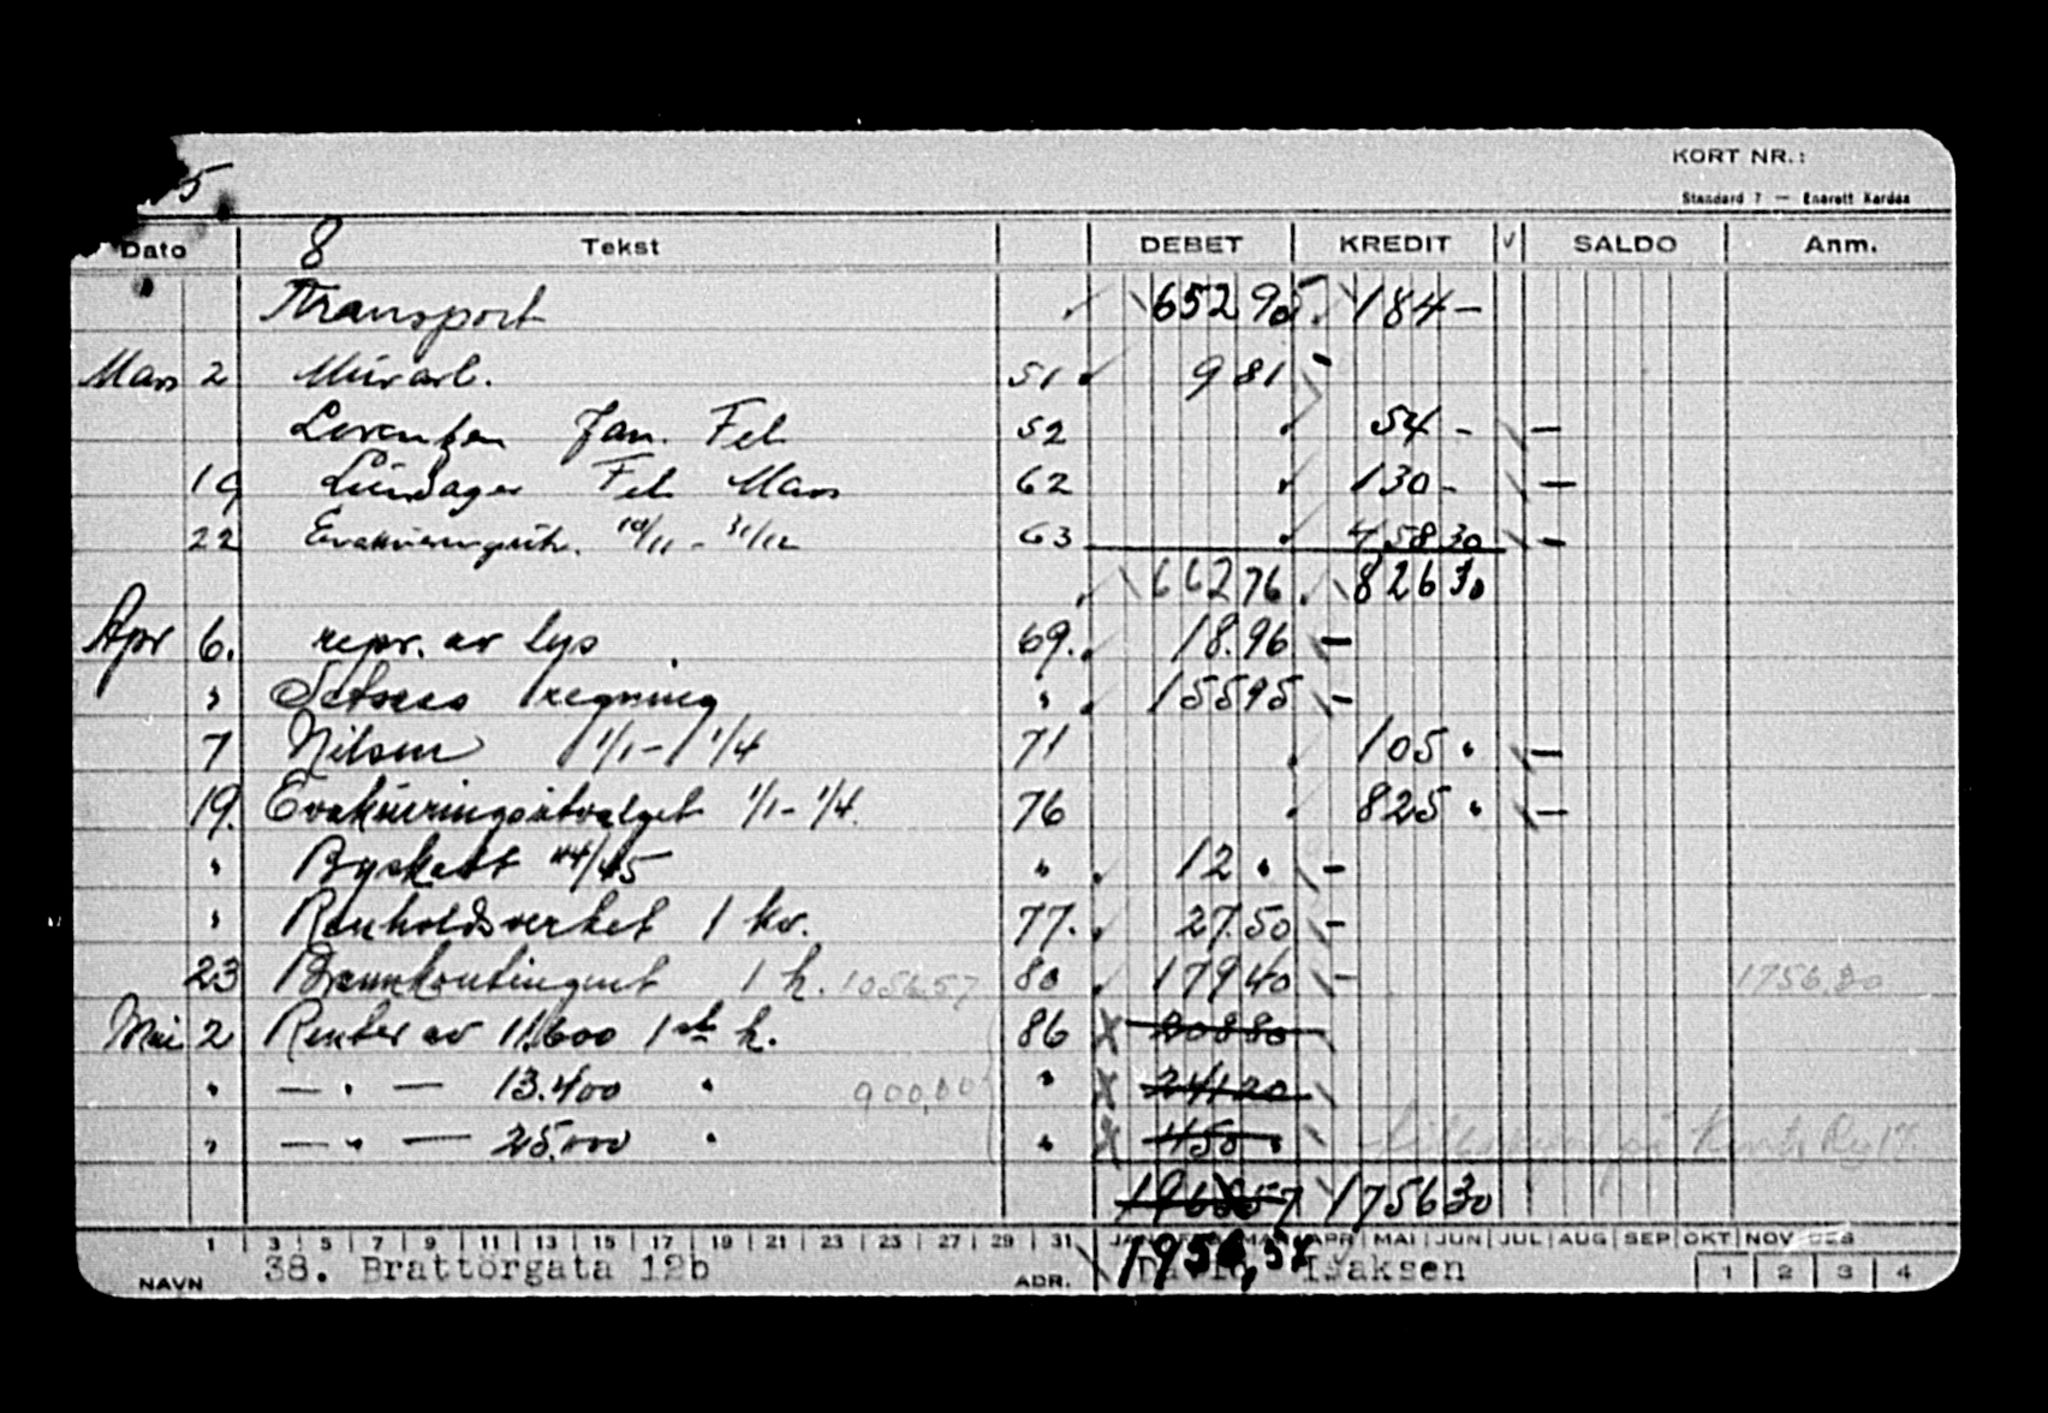 5
KORT NR.:
Standard 7 — Enerett Kardex
Dato 8 Tekst DEBET KREDIT √ SALDO Anm.
Transport 652 95 184 –
Mars 2 Murarb. 51 9 81 –
Lorentzen Jan. Feb 52 54 – –
19 Lundager Feb Mars 62 130 – –
22 Evakueringsutv. 10/11 – 31/12 63 458 30 –
662 76 826 30
Apr 6. repr. av lys 69. 18.96 –
" regning " 155 95 –
7 Nilsen 1/1 – 1/4 71 105 " –
19. Evakueringsutvalget 1/1 – 1/4. 76 825 " –
" Byskatt 44/45 " 12 " –
" Renholdsverket 1 kv. 77. 27.50 –
23 Brannkontingent 1 h. 1056.57 80 179 40 – 1756.30
Mai 2 Renter av 11.600 1ste h. 86 208 80
" — " — 13.400 " 900,00 " 241 20
" — " — 25.000 " " 450 " på
1756 30
1 3 5 7 9 11 13 15 17 19 21 23 25 27 29 31 JAN FEB MAR APR MAI JUN JUL AUG SEP OKT NOV DES
1956,57
NAVN 38. Brattörgata 12b ADR. David Isaksen 1 2 3 4